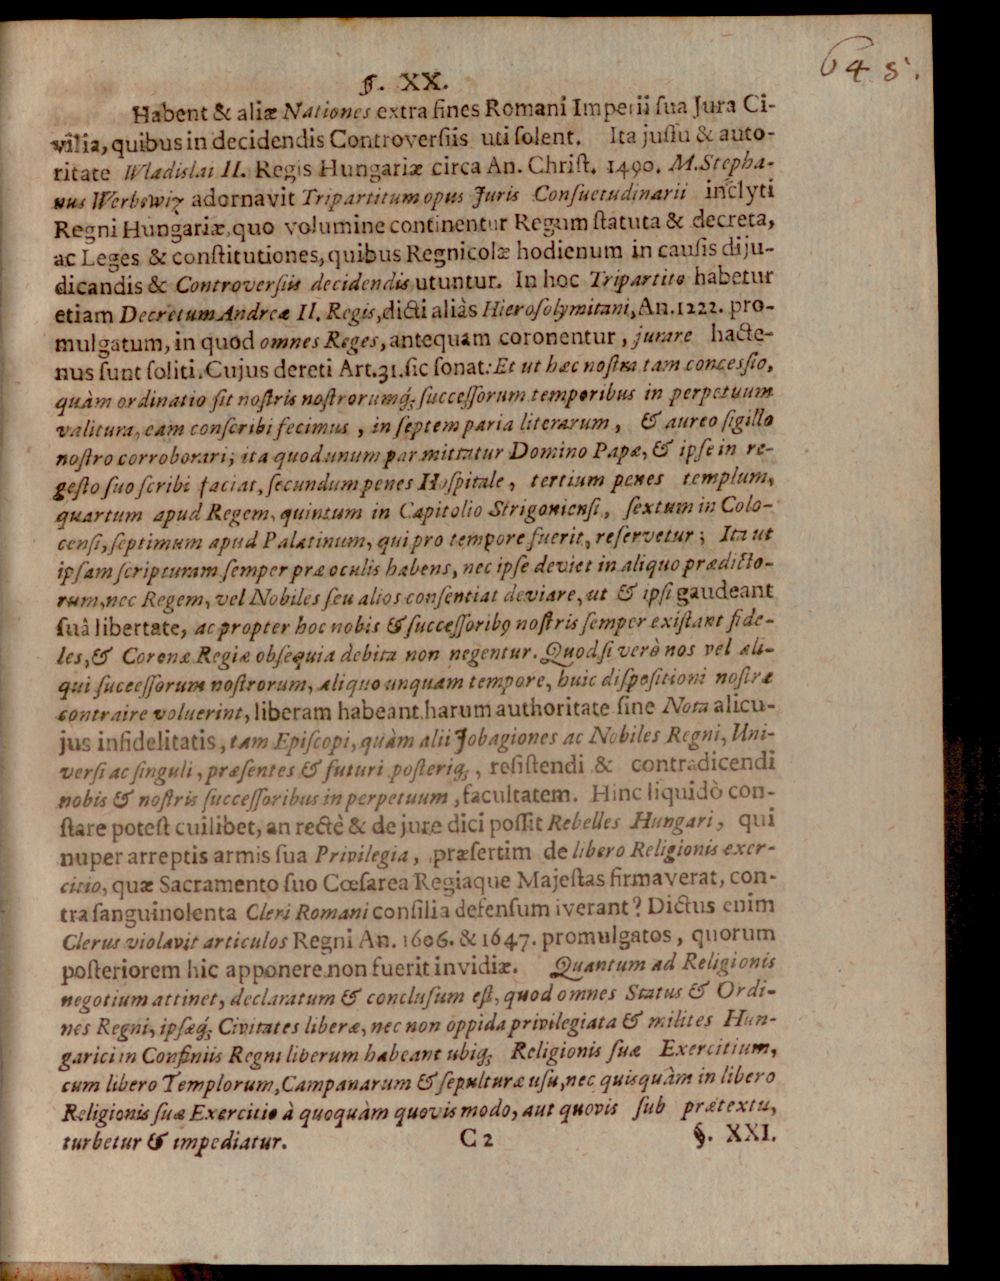 645.
§. XX.
Habent & aliæ Nationes extra fines Romani Imperii sua Jura Ci-
vilia, quibus in decidendis Controversiis uti solent. Ita jussu & auto-
ritate Wladislai II. Regis Hungariæ circa An. Christ. 1490. M. Stepha-
nus Werbewiz adornavit Tripartitum opus Juris Consuetudinarii inclyti
Regni Hungariæ, quo volumine continentur Regum statuta & decreta,
ac Leges & constitutiones, quibus Regnicolæ hodienum in causis diju-
dicandis & Controversiis decidendis utuntur. In hoc Tripartito habetur
etiam Decretum Andreæ II. Regis, dicti aliàs Hierosolymitani, An. 1222. pro-
mulgatum, in quod omnes Reges, antequam coronentur, jurare hacte-
nus sunt soliti. Cujus dereti Art. 31. sic sonat: Et ut hæc nostra tam concessio,
quàm ordinatio sit nostris nostrorumq́; successorum temporibus in perpetuum
valitura, eam conscribi fecimus, in septem paria literarum, & aureo sigillo
nostro corroborari; ita quod unum par mittatur Domino Papæ, & ipse in re-
gesto suo scribi faciat, secundum penes Hospitale, tertium penes templum,
quartum apud Regem, quintum in Capitolio Strigoniensi, sextum in Colo-
censi, septimum apud Palatinum, qui pro tempore fuerit, reservetur; Ita ut
ipsam scripturam semper præ oculis habens, nec ipse deviet in aliquo prædicto-
rum, nec Regem, vel Nobiles seu alios consentiat deviare, ut & ipsi gaudeant
suâ libertate, ac propter hoc nobis & successoribꝰ nostris semper existant fide-
les, & Coronæ Regiæ obsequia debita non negentur. Quodsi verò nos vel ali-
qui successorum nostrorum, aliquo unquam tempore, huic dispositioni nostræ
contraire voluerint, liberam habeant harum authoritate sine Nota alicu-
jus infidelitatis, tam Episcopi, quàm alii Jobagiones ac Nobiles Regni, Uni-
versi ac singuli, præsentes & futuri posteriq́;, resistendi & contradicendi
nobis & nostris successoribus in perpetuum, facultatem. Hinc liquidò con-
stare potest cuilibet, an rectè & de jure dici possit Rebelles Hungari, qui
nuper arreptis armis sua Privilegia, præsertim de libero Religionis exer-
citio, quæ Sacramento suo Cœsarea Regiaque Majestas firmaverat, con-
tra sanguinolenta Cleri Romani consilia defensum iverant? Dictus enim
Clerus violavit articulos Regni An. 1606. & 1647. promulgatos, quorum
posteriorem hic apponere non fuerit invidiæ. Quantum ad Religionis
negotium attinet, declaratum & conclusum est, quod omnes Status & Ordi-
nes Regni, ipsæq́; Civitates liberæ, nec non oppida privilegiata & milites Hun-
garici in Confiniis Regni liberum habeant ubiq́; Religionis suæ Exercitium,
cum libero Templorum, Campanarum & sepulturæ usu, nec quisquàm in libero
Religionis suæ Exercitio à quoquàm quovis modo, aut quovis sub prætextu,
turbetur & impediatur.
C 2
§. XXI.